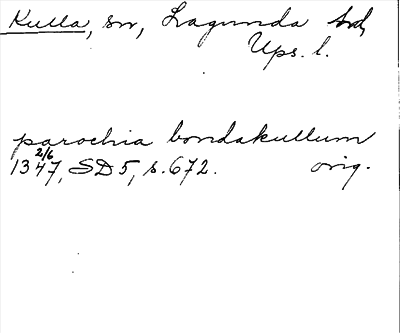 Kulla, sn, Lagunda hd,
Ups. l.
parochia bondakullum
2/6
1347, SD 5, s. 672. orig.